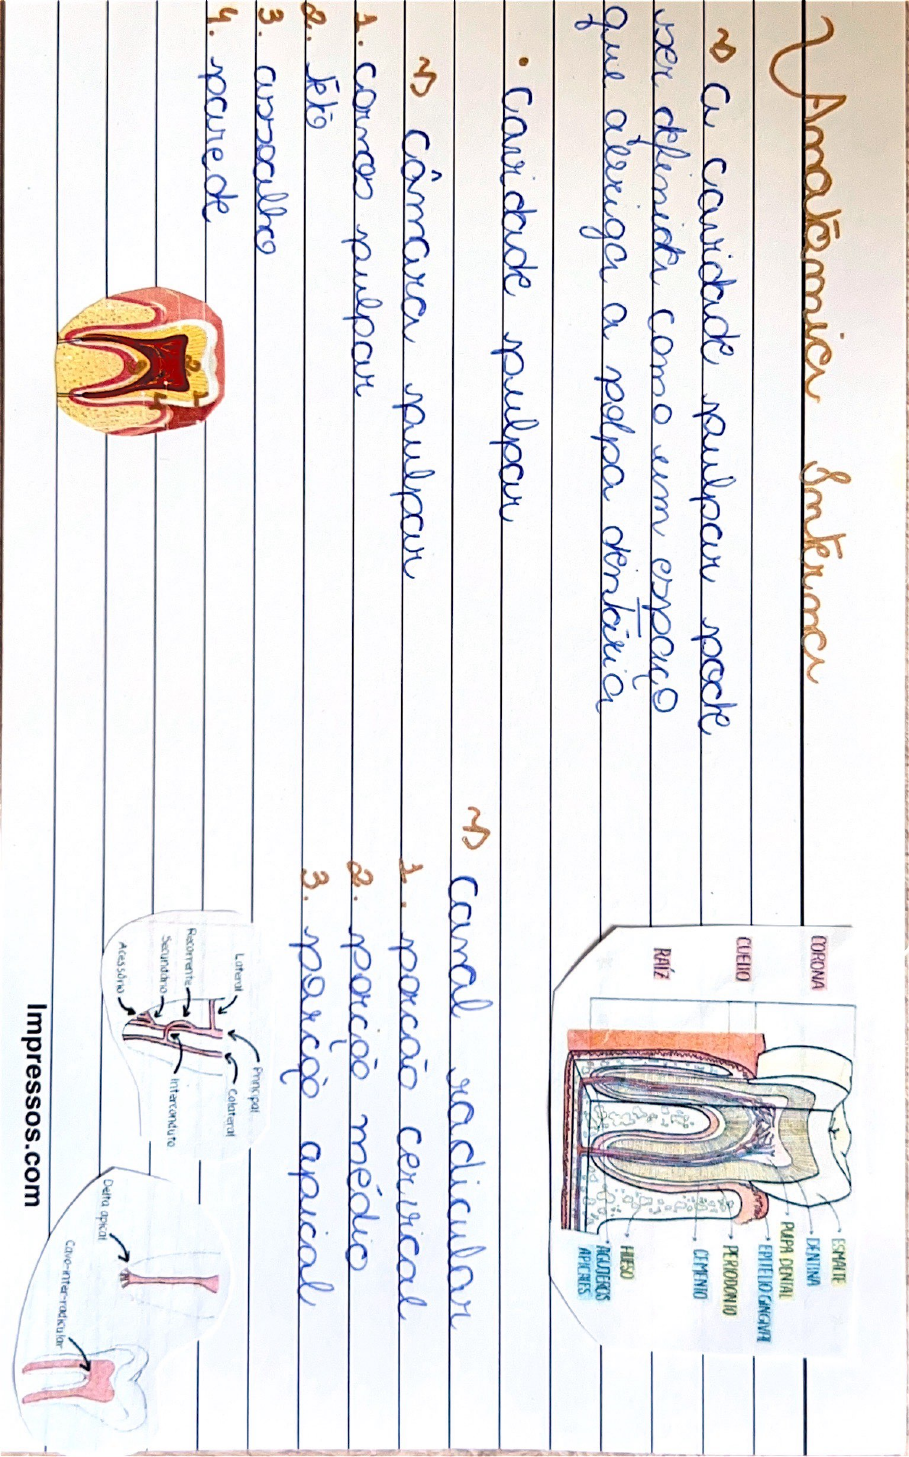 Anatômica Interna
a cavidade pulpar pode
ser definida como um espaço
que abriga a polpa dentária
• Cavidade pulpar
câmara pulpar
1. cornos pulpar
2. teto
3. assoalho
4. parede
Canal radicular
1. porção cervical
2. porção médio
3. porção apical
CORONA
CUELLO
RAÍZ
ESMALTE
DENTINA
PULPA DENTAL
EPITELIO GINGIVAL
PERIODONTO
CEMENTO
HUESO
AGUJEROS
APICALES
Lateral
Recorrente
Secundário
Acessório
Principal
Colateral
Interconduto
Delta apical
Cavo-inter-radicular
Impressos.com